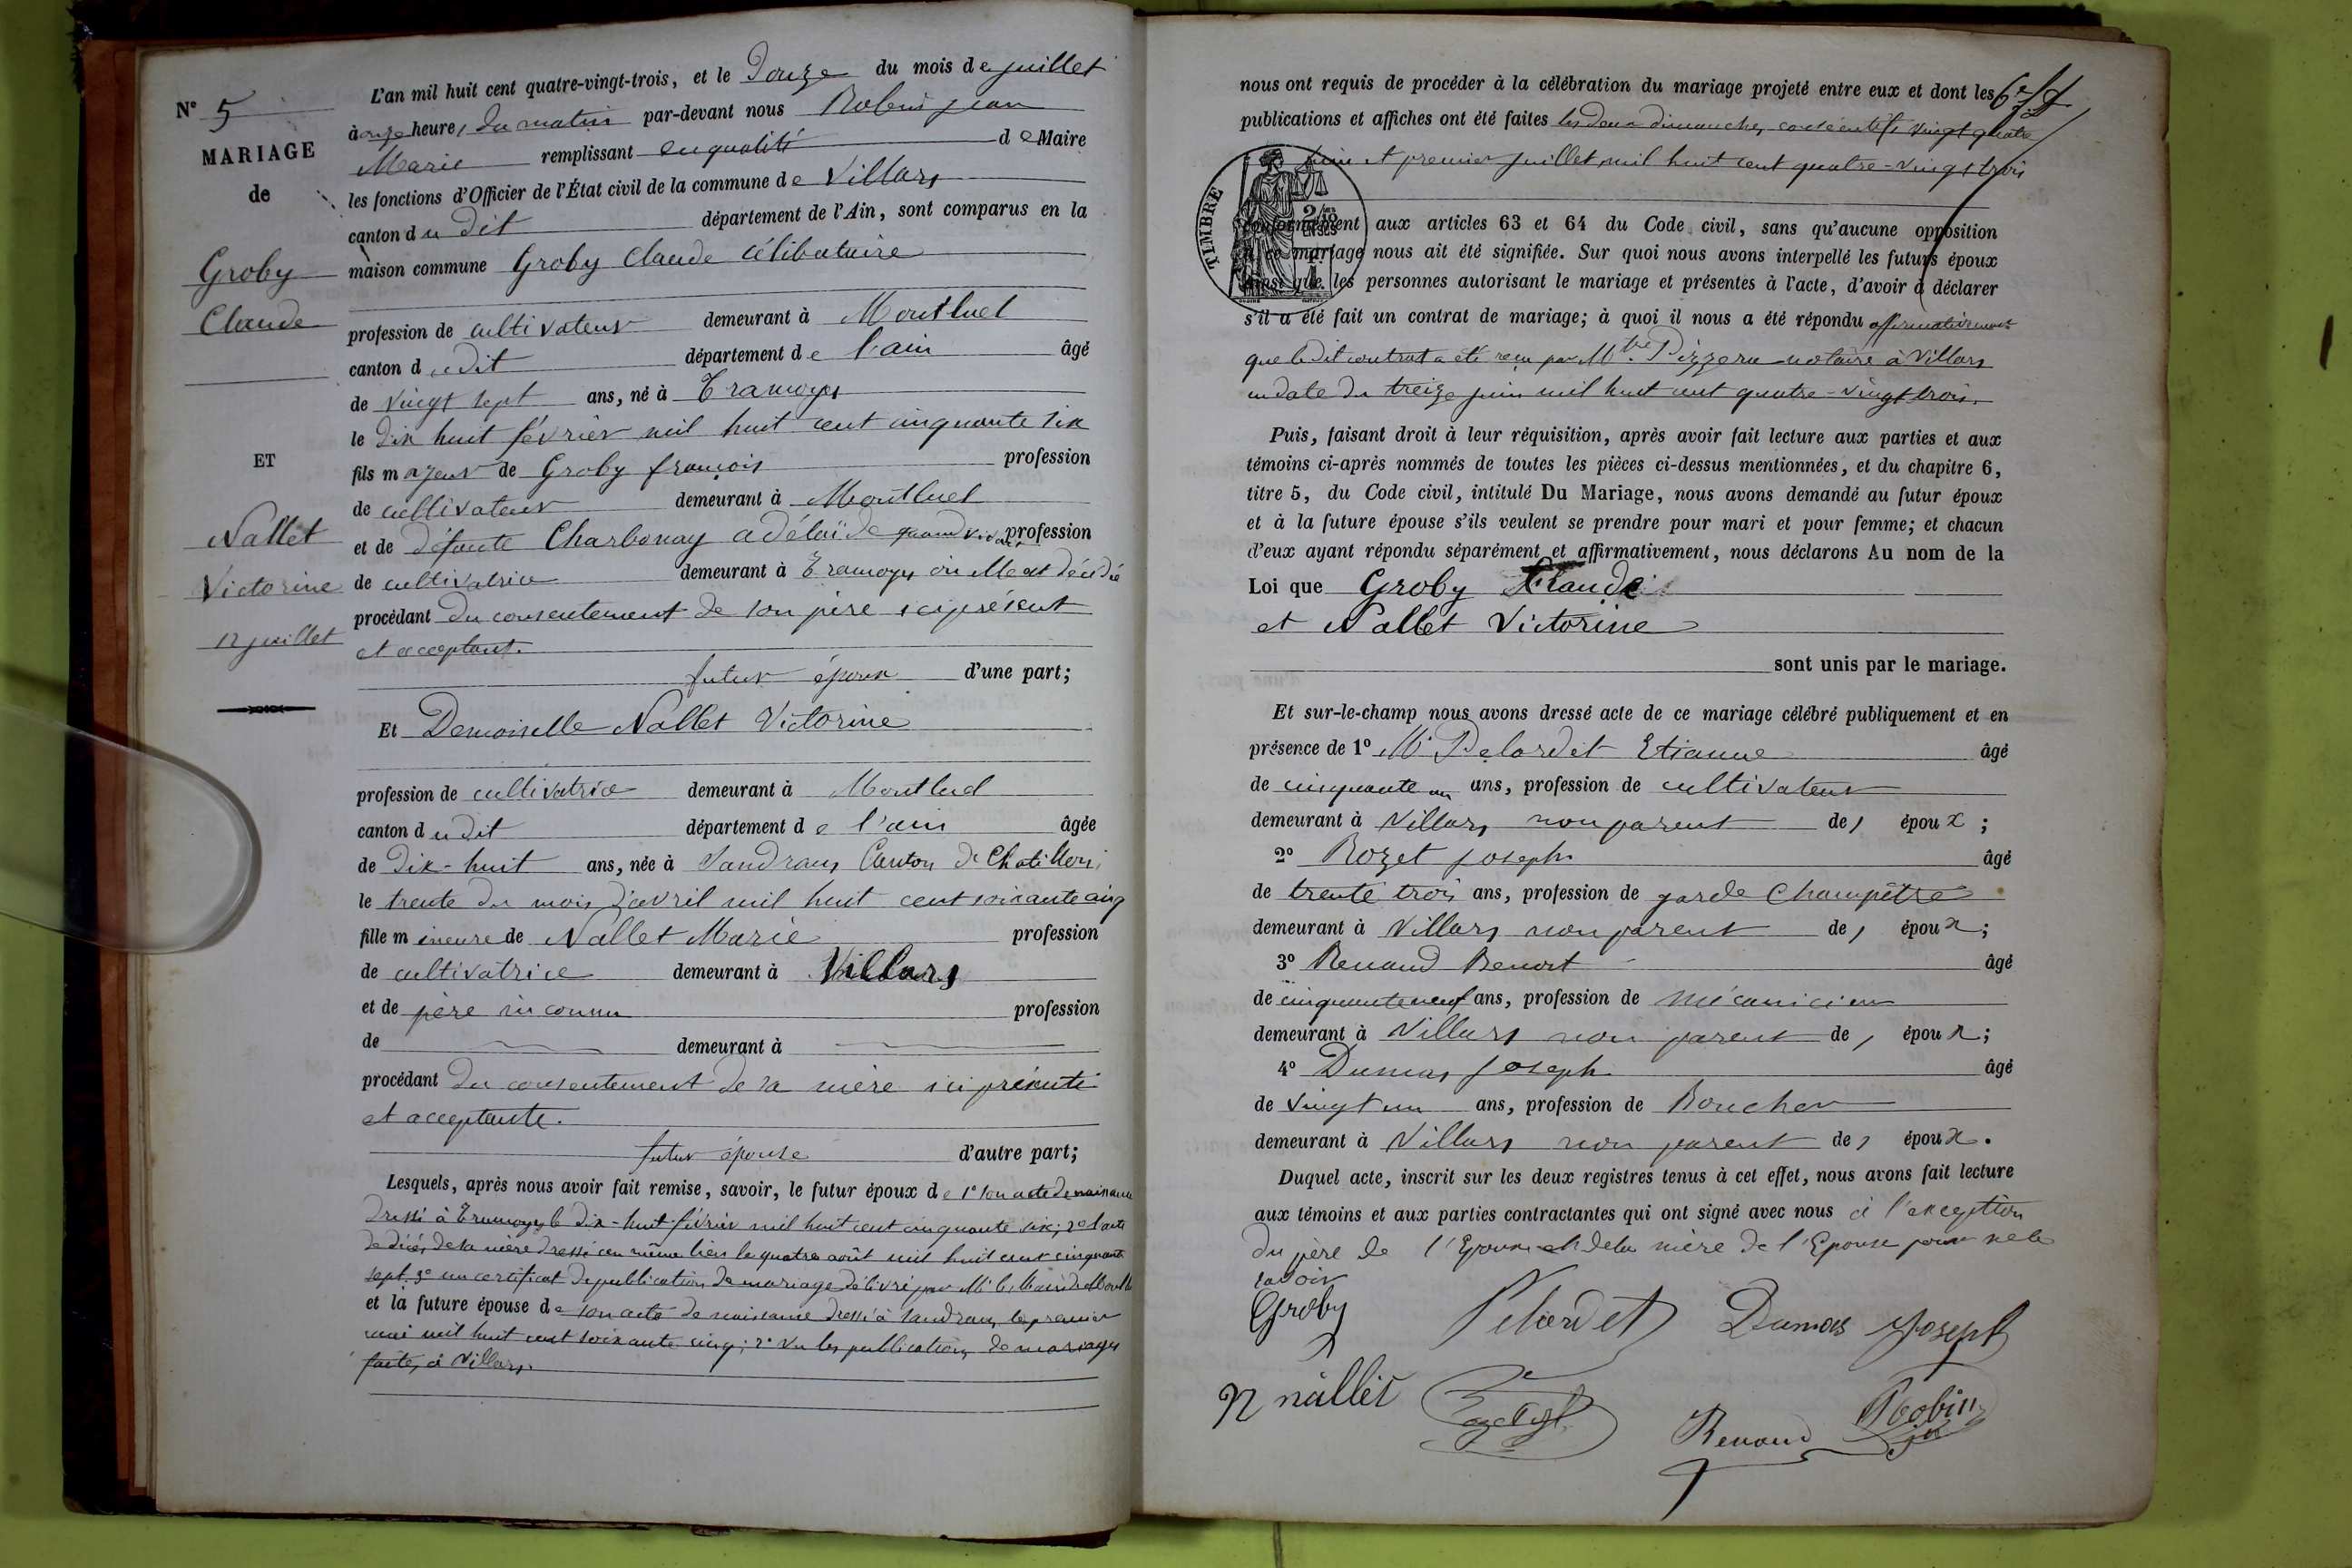 N° 5
MARIAGE
de
Groby
Claude
ET
Nallet
Victorine
12 juillet
L'an mil huit cent quatre-vingt-trois, et le Douze du mois de juillet
à onze heures du matin par-devant nous Robin jean
Marie remplissant en qualité de Maire
les fonctions d'Officier de l'État civil de la commune de Villars
canton du dit département de l'Ain, sont comparus en la
maison commune Groby Claude Célibataire
profession de cultivateur demeurant à Montluel
canton dudit département de l'ain âgé
de vingt sept ans, né à Tramoyes
le dix huit février mil huit cent cinquante six
fils majeur de Groby françois profession
de cultivateur demeurant à Montluel
et de défunte Charbonay adélaïde quand vivait profession
de cultivatrice demeurant à Tramoyes où elle est décédée
procédant du consentement de son père ici présent
et acceptant.
futur époux d'une part;
Et Demoiselle Nallet Victorine
profession de cultivatrice demeurant à Montluel
canton dudit département de l'ain âgée
de Dix-huit ans, née à Sandrans Canton de Chatillon
le trente du mois d'avril mil huit cent soixante cinq
fille mineure de Nallet Marie profession
de cultivatrice demeurant à Villars
et de père inconnu profession
de demeurant à
procédant du consentement de sa mère ici présente
et acceptante.
futur épouse d'autre part;
Lesquels, après nous avoir fait remise, savoir, le futur époux de 1° son acte de naissance
dressé à Tramoyes le dix-huit février mil huit cent cinquante six; 2° l'acte
de décès de sa mère dressé au même lieu le quatre août mil huit cent cinquante
sept 3° un certificat de publication de mariage délivré par Mr le Maire de
et la future épouse de son acte de naissance dressé à Sandrans le premier
mai mil huit cent soixante cinq; 2° Vu les publications de mariages
faites à Villars.
nous ont requis de procéder à la célébration du mariage projeté entre eux et dont les
publications et affiches ont été faites les deux dimanches consécutifs vingt quatre
juin et premier juillet mil huit cent quatre-vingt trois
TIMBRE
conformément aux articles 63 et 64 du Code civil, sans qu'aucune opposition
à ce mariage nous ait été signifiée. Sur quoi nous avons interpellé les futurs époux
ainsi que les personnes autorisant le mariage et présentes à l'acte, d'avoir à déclarer
s'il a été fait un contrat de mariage; à quoi il nous a été répondu affirmativement
que ledit contrat a été reçu par Mtre Pizzera notaire à Villars
en date du treize juin mil huit cent quatre-vingt trois.
Puis, faisant droit à leur réquisition, après avoir fait lecture aux parties et aux
témoins ci-après nommés de toutes les pièces ci-dessus mentionnées, et du chapitre 6,
titre 5, du Code civil, intitulé Du Mariage, nous avons demandé au futur époux
et à la future épouse s'ils veulent se prendre pour mari et pour femme; et chacun
d'eux ayant répondu séparément et affirmativement, nous déclarons Au nom de la
Loi que Groby Claude
et Nallet Victorine
sont unis par le mariage.
Et sur-le-champ nous avons dressé acte de ce mariage célébré publiquement et en
présence de 1° Mr Pelardet Etienne âgé
de cinquante un ans, profession de cultivateur
demeurant à Villars non parent des époux;
2° Rozet joseph âgé
de trente trois ans, profession de garde Champêtre
demeurant à Villars non parent des époux;
3° Renaud Benoit âgé
de cinquante neuf ans, profession de mécanicien
demeurant à Villars non parent des époux;
4° Dumas joseph âgé
de vingt un ans, profession de Boucher
demeurant à Villars non parent des époux.
Duquel acte, inscrit sur les deux registres tenus à cet effet, nous avons fait lecture
aux témoins et aux parties contractantes qui ont signé avec nous à l'exception
du père de l'Epoux et de la mère de l'Epouse pour ne le
savoir
Groby Pelardet Dumas Joseph
nallet Renaud Robin